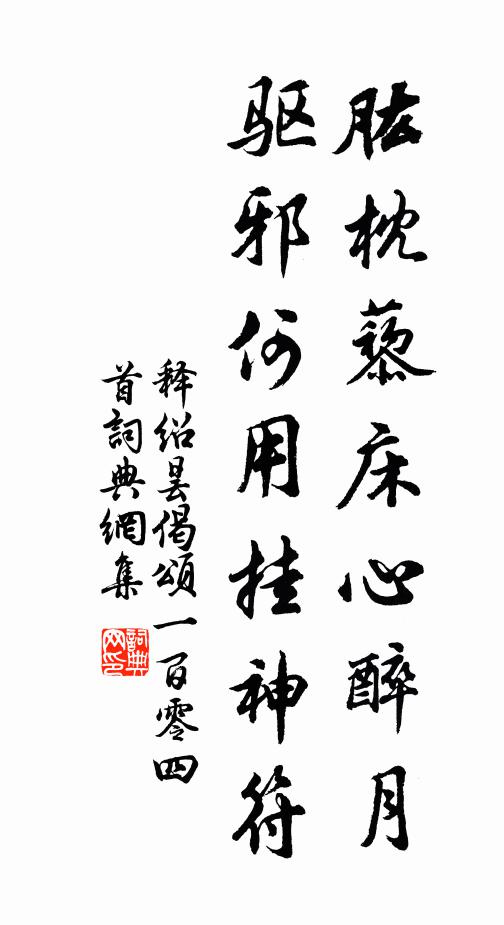 肱枕藜床心醉月
驱邪何用挂神符
释绍昙偈颂一百零四
首詞典網集
詞典
网印